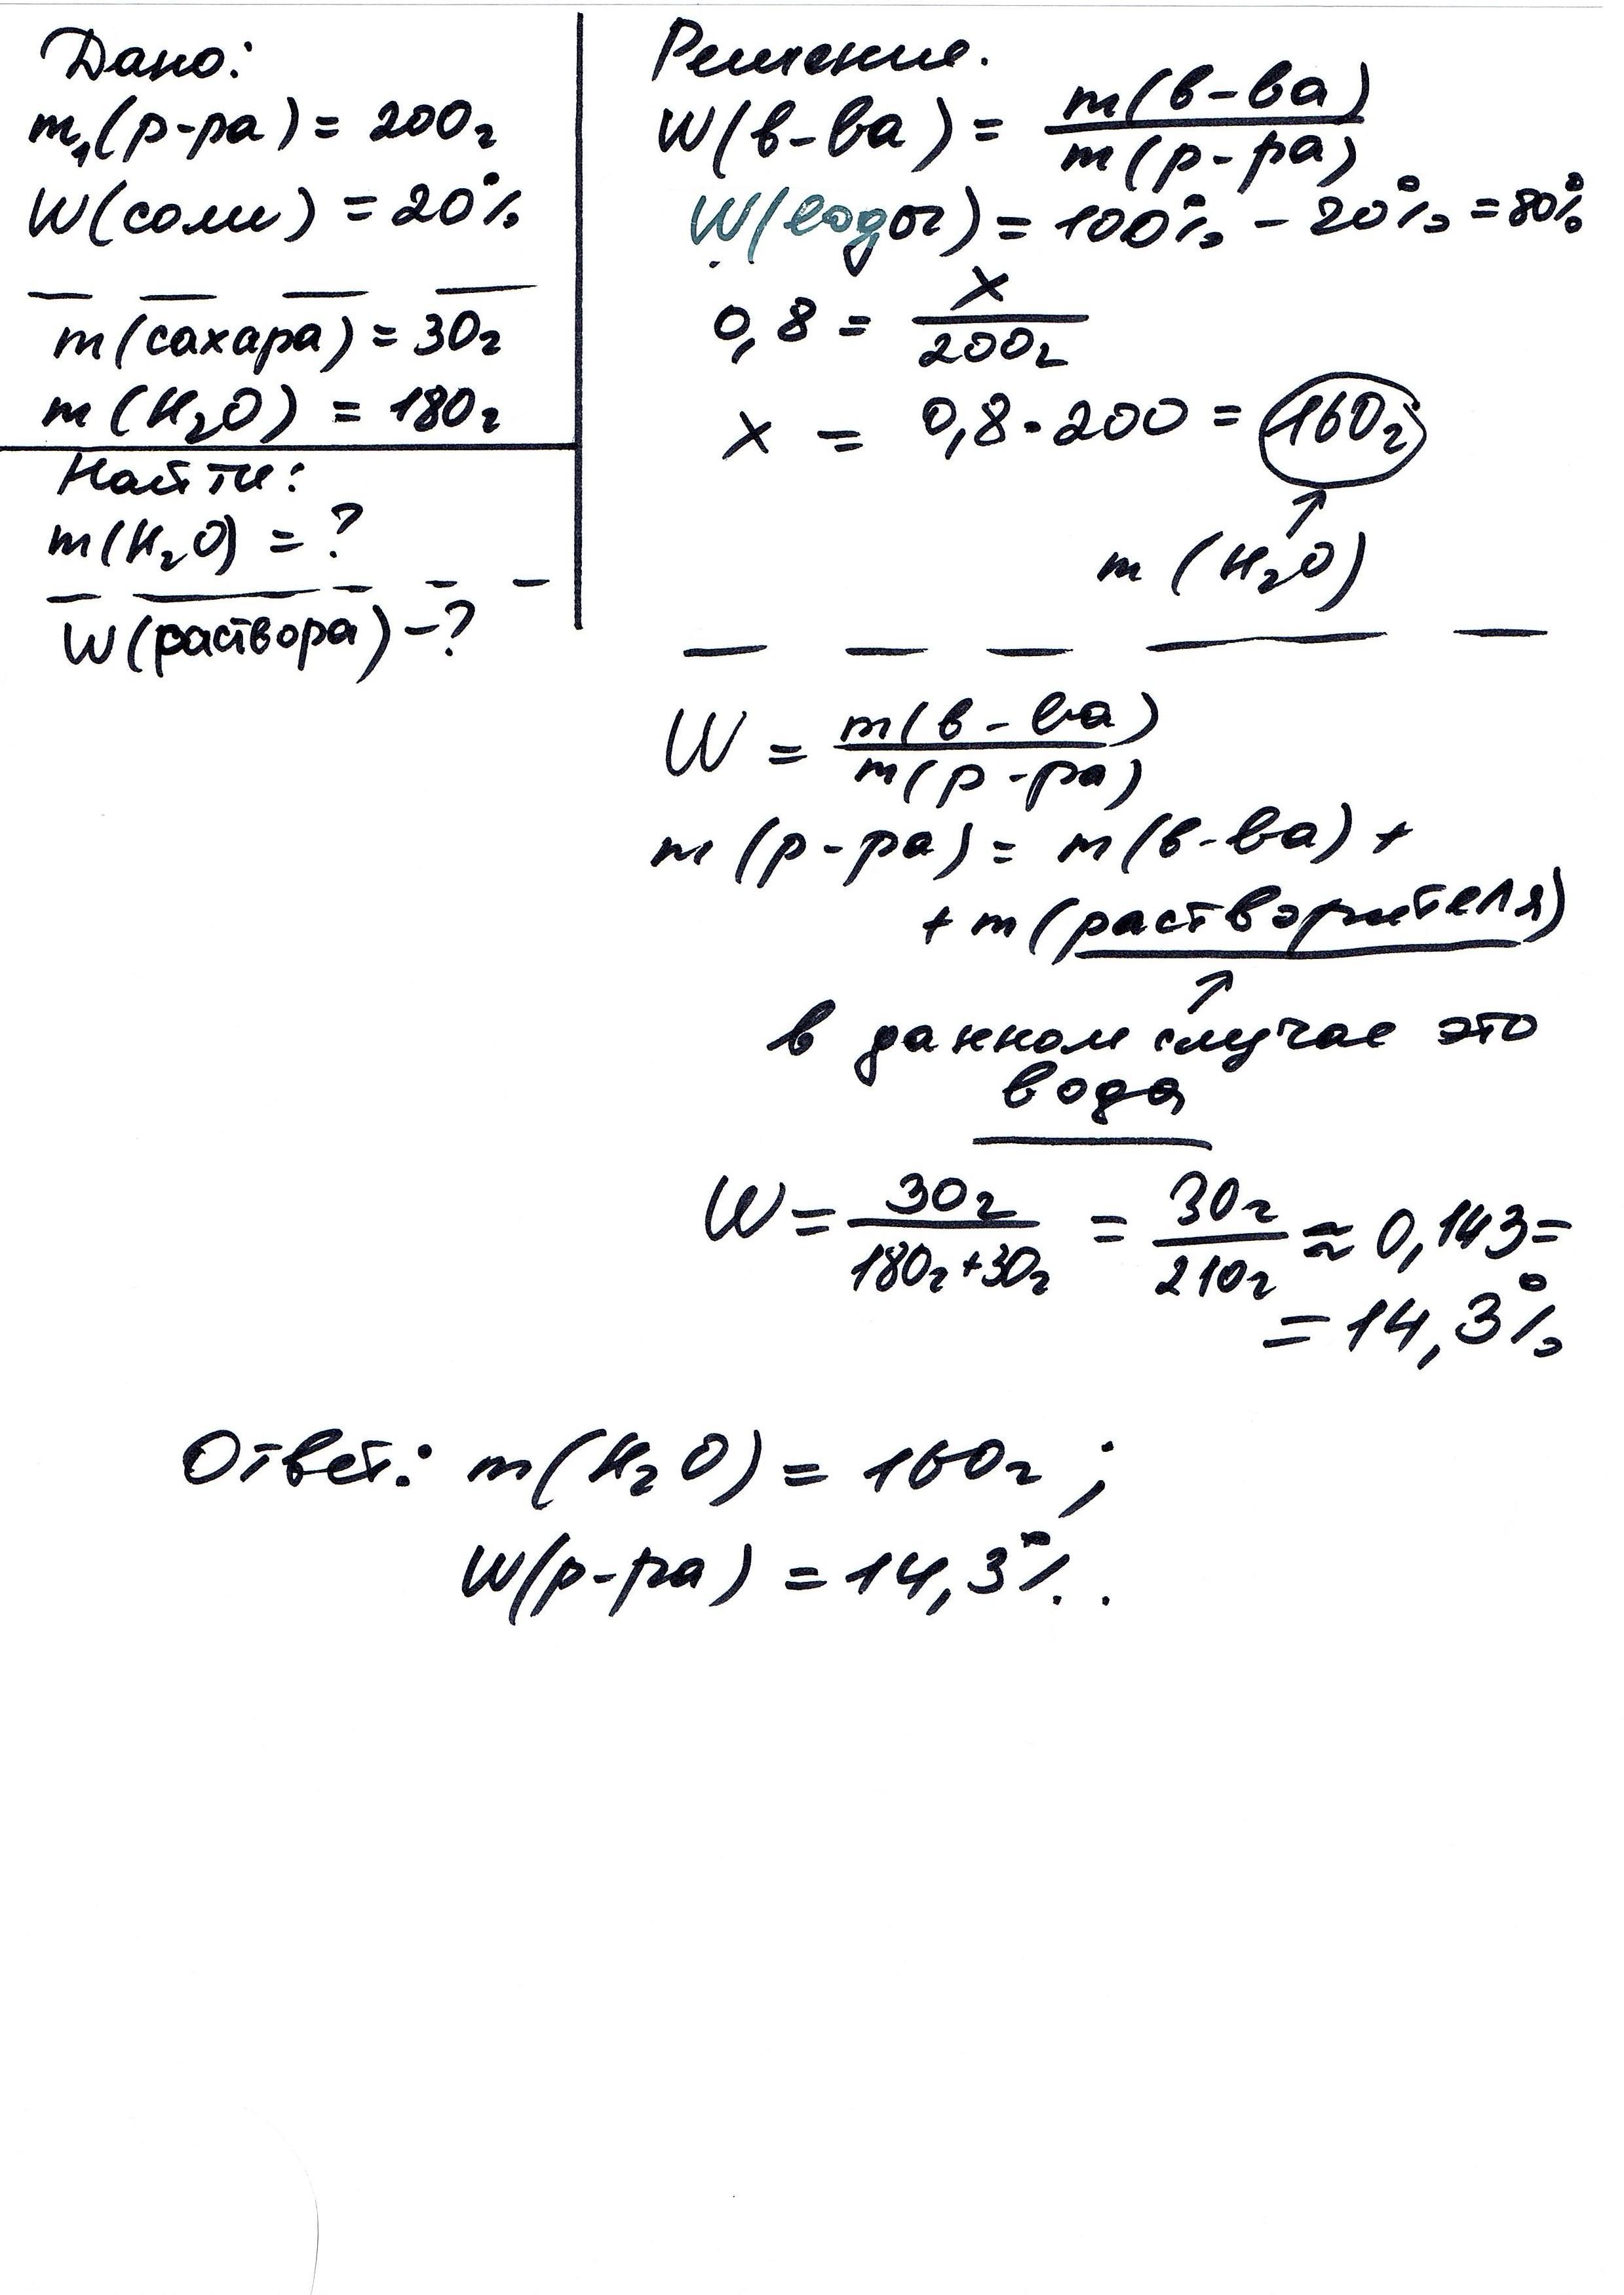 Дано:
m₁(р-ра) = 200г
W(соли) = 20%
m(сахара) = 30г
m(H₂O) = 180г
Найти:
m(H₂O) = ?
W(раствора) - ?
Решение.
W(в-ва) = m(в-ва) / m(р-ра)
W(воды) = 100% - 20% = 80%
0,8 = x / 200г
x = 0,8 · 200 = 160г
↑
m(H₂O)
W = m(в-ва) / m(р-ра)
m(р-ра) = m(в-ва) +
+ m(растворителя)
↑
в данном случае это
вода
W = 30г / 180г+30г = 30г / 210г ≈ 0,143 =
= 14,3%
Ответ: m(H₂O) = 160г ;
W(р-ра) = 14,3%.